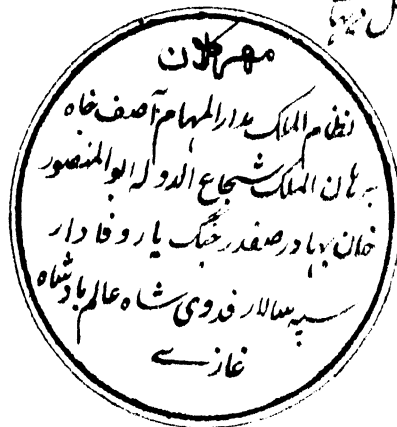 مهر کلان
نظام الملک مدار المهام آصف جاه
برهان الملک شجاع الدوله ابو المنصور
خان بهادر صفدر جنگ یار وفادار
سپه سالار فدوی شاه عالم بادشاه
غازے